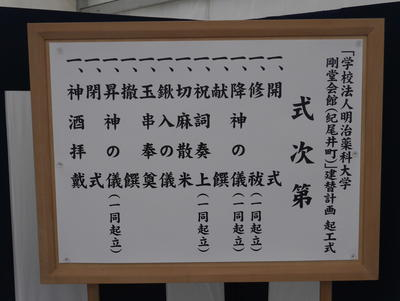 「学校法人明治薬科大学
剛堂会館（紀尾井町）」建替計画 起工式
式次第
一、開式
一、修祓（一同起立）
一、降神の儀（一同起立）
一、献饌
一、祝詞奏上（一同起立）
一、切麻散米
一、鍬入の儀
一、玉串奉奠
一、撤饌
一、昇神の儀（一同起立）
一、閉式
一、神酒拝戴